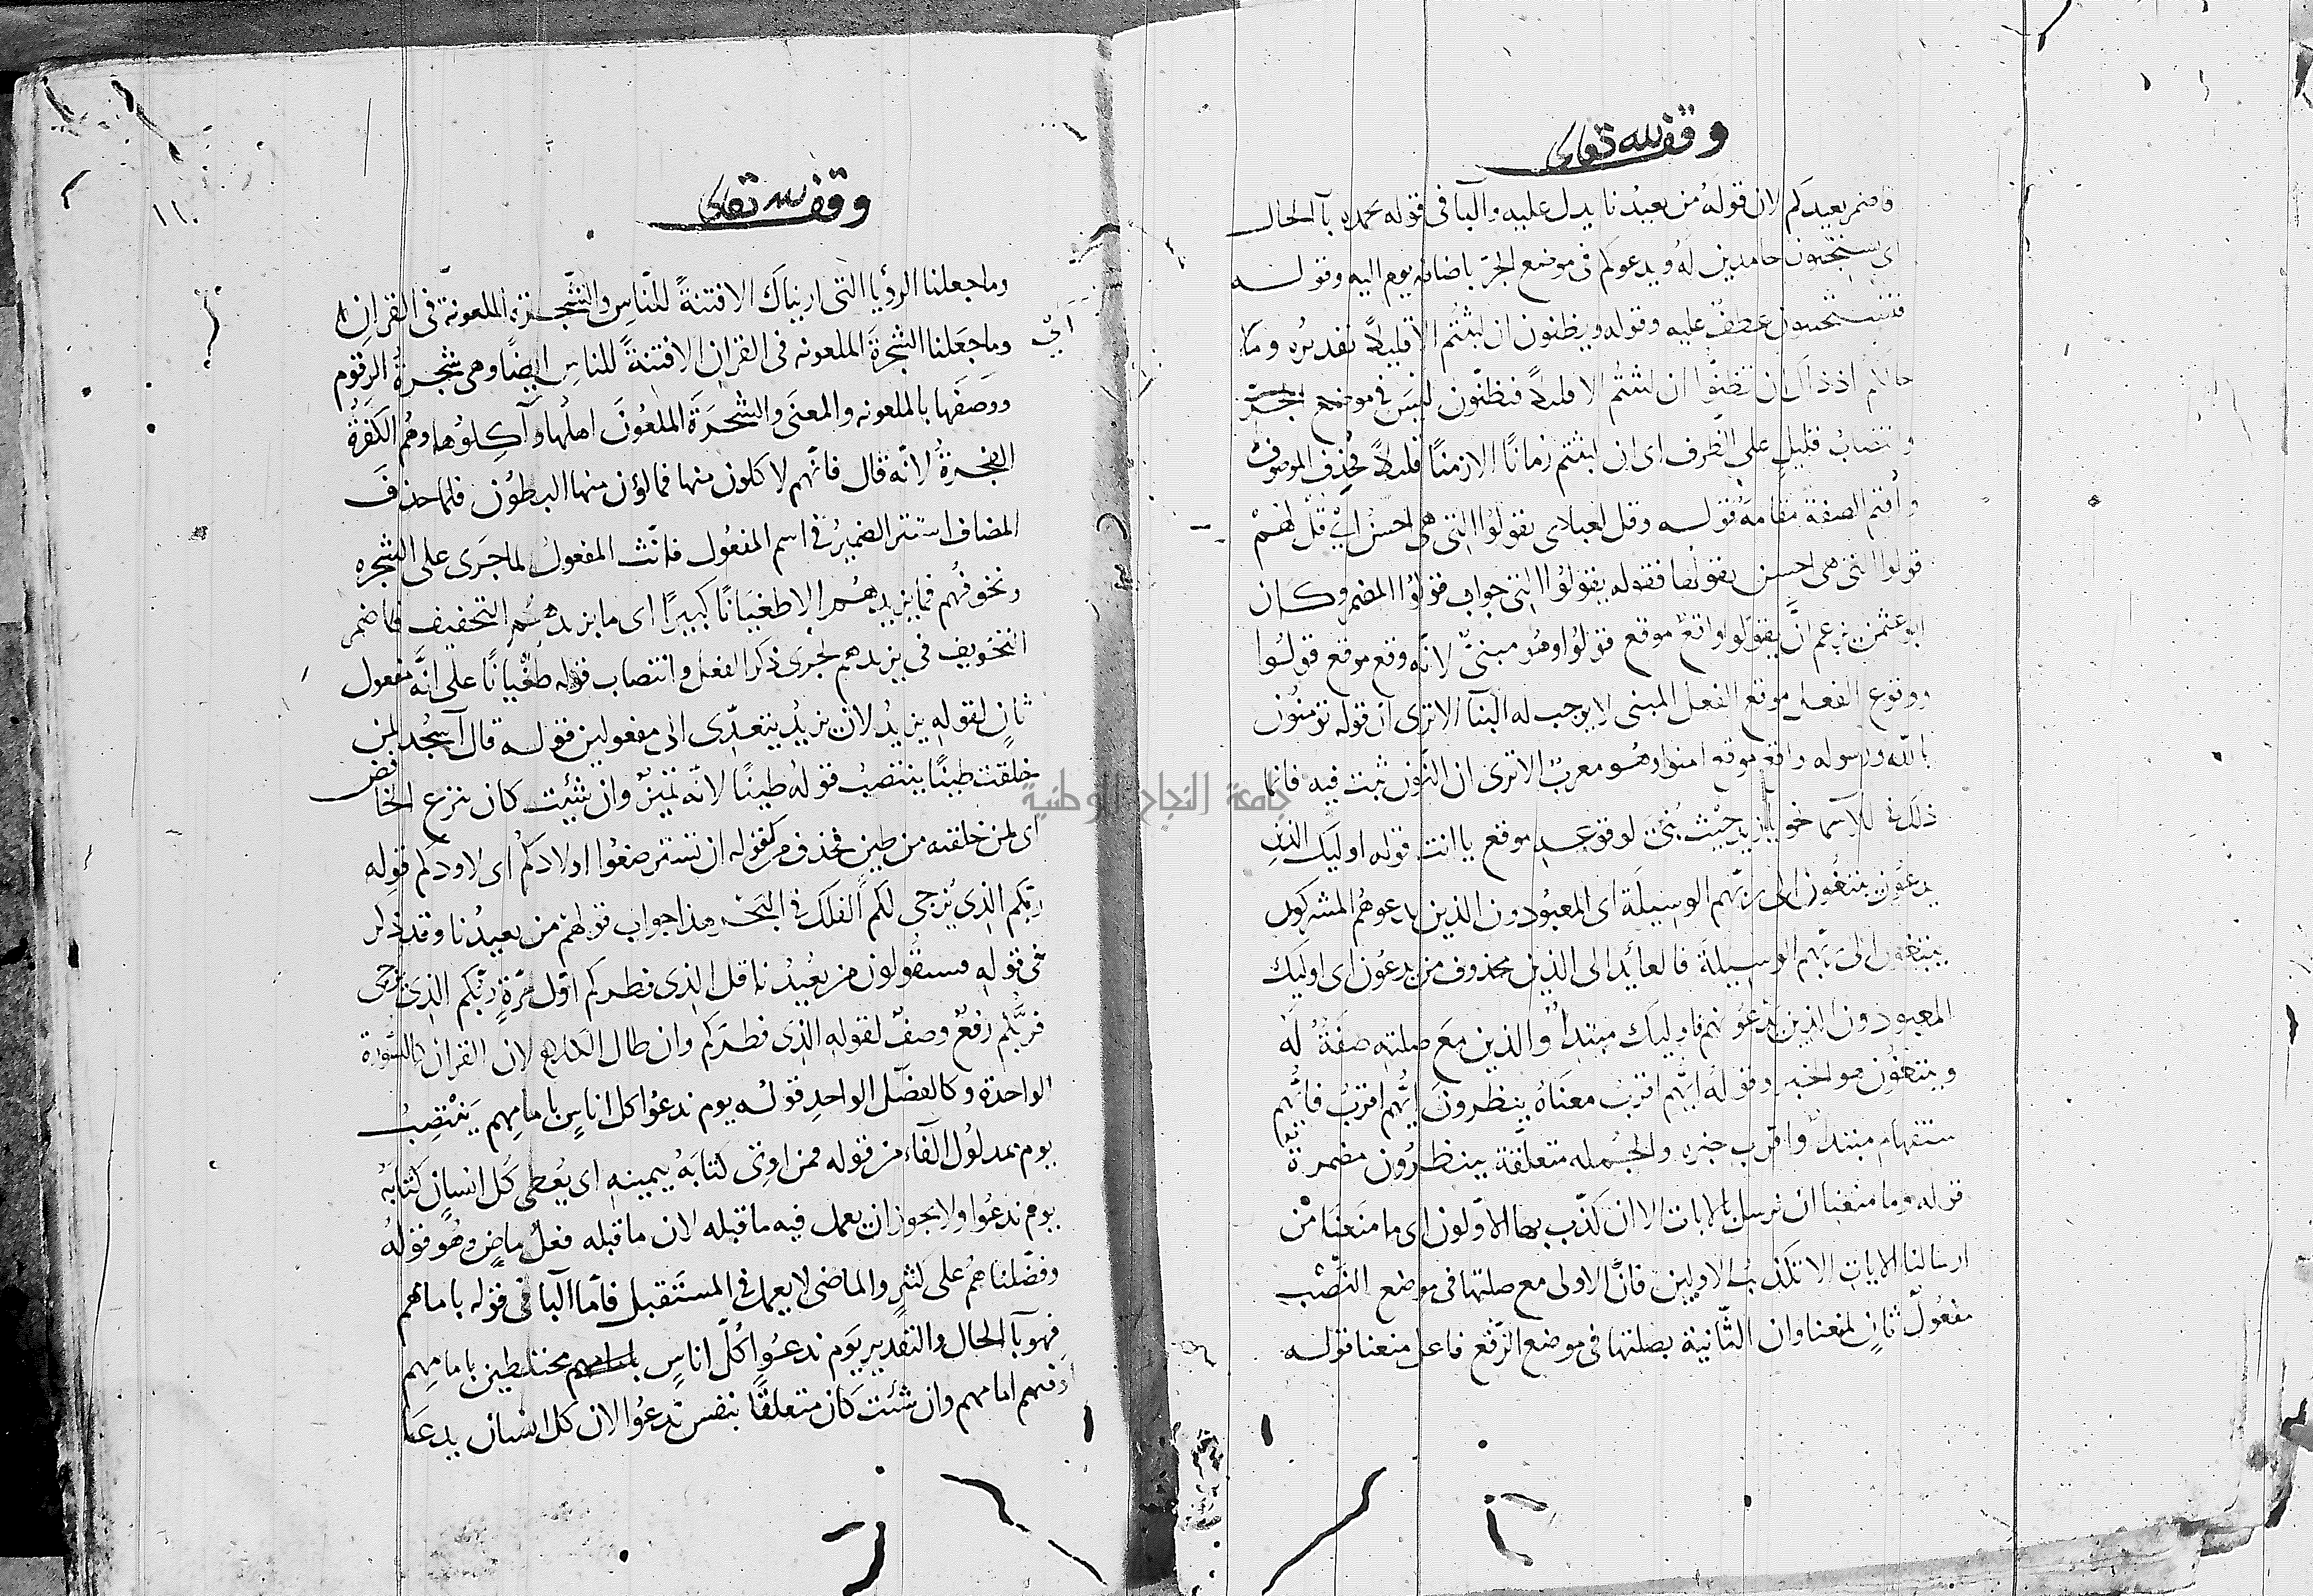 وقف لله تعالى
فاضمر يعيدكم لان قوله من يعيدنا يدل عليه والبا فى قوله بحمده بآ الحال
اى تستجيبون حامدين له ويدعوكم فى موضع الجر باضافه يوم اليه وقوله
فتستجيبون عطف عليه وقوله ويظنون ان لبثتم الا قليلا تقديره وما
حالكم اذ ذاك ان تظنوا ان لبثتم الا قليلا فتظنون ليس فى موضع الجر
وانتصاب قليل على الظرف اى ان لبثتم زمانا الا زمنا قليلا فحذف الموصوف
واقيم الصفة مقامه قوله وقل لعبادى يقولوا التى هى احسن اى قل لهم
قولوا التى هى احسن يقولها فقوله يقولوا التى جواب قولوا المضمر وكان
ابو عثمن يزعم ان يقولوا واقع موقع قولوا وهو مبنى لانه وقع موقع قولوا
ووقوع الفعل موقع الفعل المبنى لا يوجب له البنا الا ترى ان قوله تومنون
بالله ورسوله واقع موقع امنوا وهو معرب الا ترى ان النون ثبت فيه فانما
ذلك فى الاسما نحو يا زيد حيث بنى لوقوعه موقع يا انت قوله اوليك الذين
يدعون يبتغون الى ربهم الوسيلة اى المعبودون الذين يدعوهم المشركون
يبتغون الى ربهم الوسيلة فالعائد الى الذين محذوف من يدعون اى اوليك
المعبودون الذين يدعونهم فاوليك مبتدا والذين مع صلته صفة له
ويبتغون هو الخبر وقوله ايهم اقرب معناه ينظرون ايهم اقرب فايهم
ستفهام مبتدا واقرب خبره والجمله متعلقة بينظرون مضمرة
قوله وما منعنا ان نرسل بالايات الا ان كذب بها الاولون اى ما منعنا من
ارسالنا الايات الا تكذيب الاولين فان الاولى مع صلتها فى موضع النصب
مفعول ثان لمنعنا وان الثانية بصلتها فى موضع الرفع فاعل منعنا قوله
وقف لله تعالى
١١٠
وما جعلنا الرؤيا التى اريناك الا فتنة للناس والشجرة الملعونة فى القران
اى
وما جعلنا الشجرة الملعونه فى القران الا فتنة للناس ايضا وهى شجرة الزقوم
ووصفها بالملعونه والمعنى والشجرة الملعون اهلها وآكلوها وهم الكفرة
الفجرة لانه قال فانهم لاكلون منها فمالؤن منها البطون فلما حذف
المضاف استتر الضمير فى اسم المفعول فانث المفعول لما جرى على الشجره
ونخوفهم فما يزيدهم الا طغيانا كبيرا اى ما يزيدهم التخفيف فاضمر
التخويف فى يزيدهم لجرى ذكر الفعل وانتصاب قوله طغيانا على انه مفعول
ثان لقوله يزيد لان يزيد يتعدى الى مفعولين قوله قال آسجد لمن
خلقت طينا ينتصب قوله طينا لانه تميز وان شئت كان بنزع الخافض
اى لمن خلقته من طين فحذف من كقوله ان تسترضعوا اولادكم اى لاودكم قوله
ربكم الذى يزجى لكم الفلك فى البحر هذا جواب قولهم من يعيدنا وقد ذكر
فى قوله فسيقولون من يعيدنا قل الذى فطركم اول مرة ربكم الذى يزجى
فربكم رفع وصف لقوله الذى فطركم وان طال الكلام لان القران كالسورة
الواحدة وكالفصل الواحد قوله يوم ندعوا كل اناس بامامهم ينتصب
يوم بمدلول الفاء من قوله فمن اوتى كتابه بيمينه اى يعطى كل انسان كتابه
يوم ندعوا ولا يجوز ان يعمل فيه ما قبله لان ما قبله فعل ماض وهو قوله
وفضلناهم على كثير والماضى لا يعمل فى المستقبل فاما البا فى قوله بامامهم
فهو بآ الحال والتقدير يوم ندعوا كل اناس بامامهم مختلطين بامامهم
اى فيهم امامهم وان شئت كان متعلقا بنفس ندعوا لان كل انسان يدعا
جامعة النجاح الوطنية